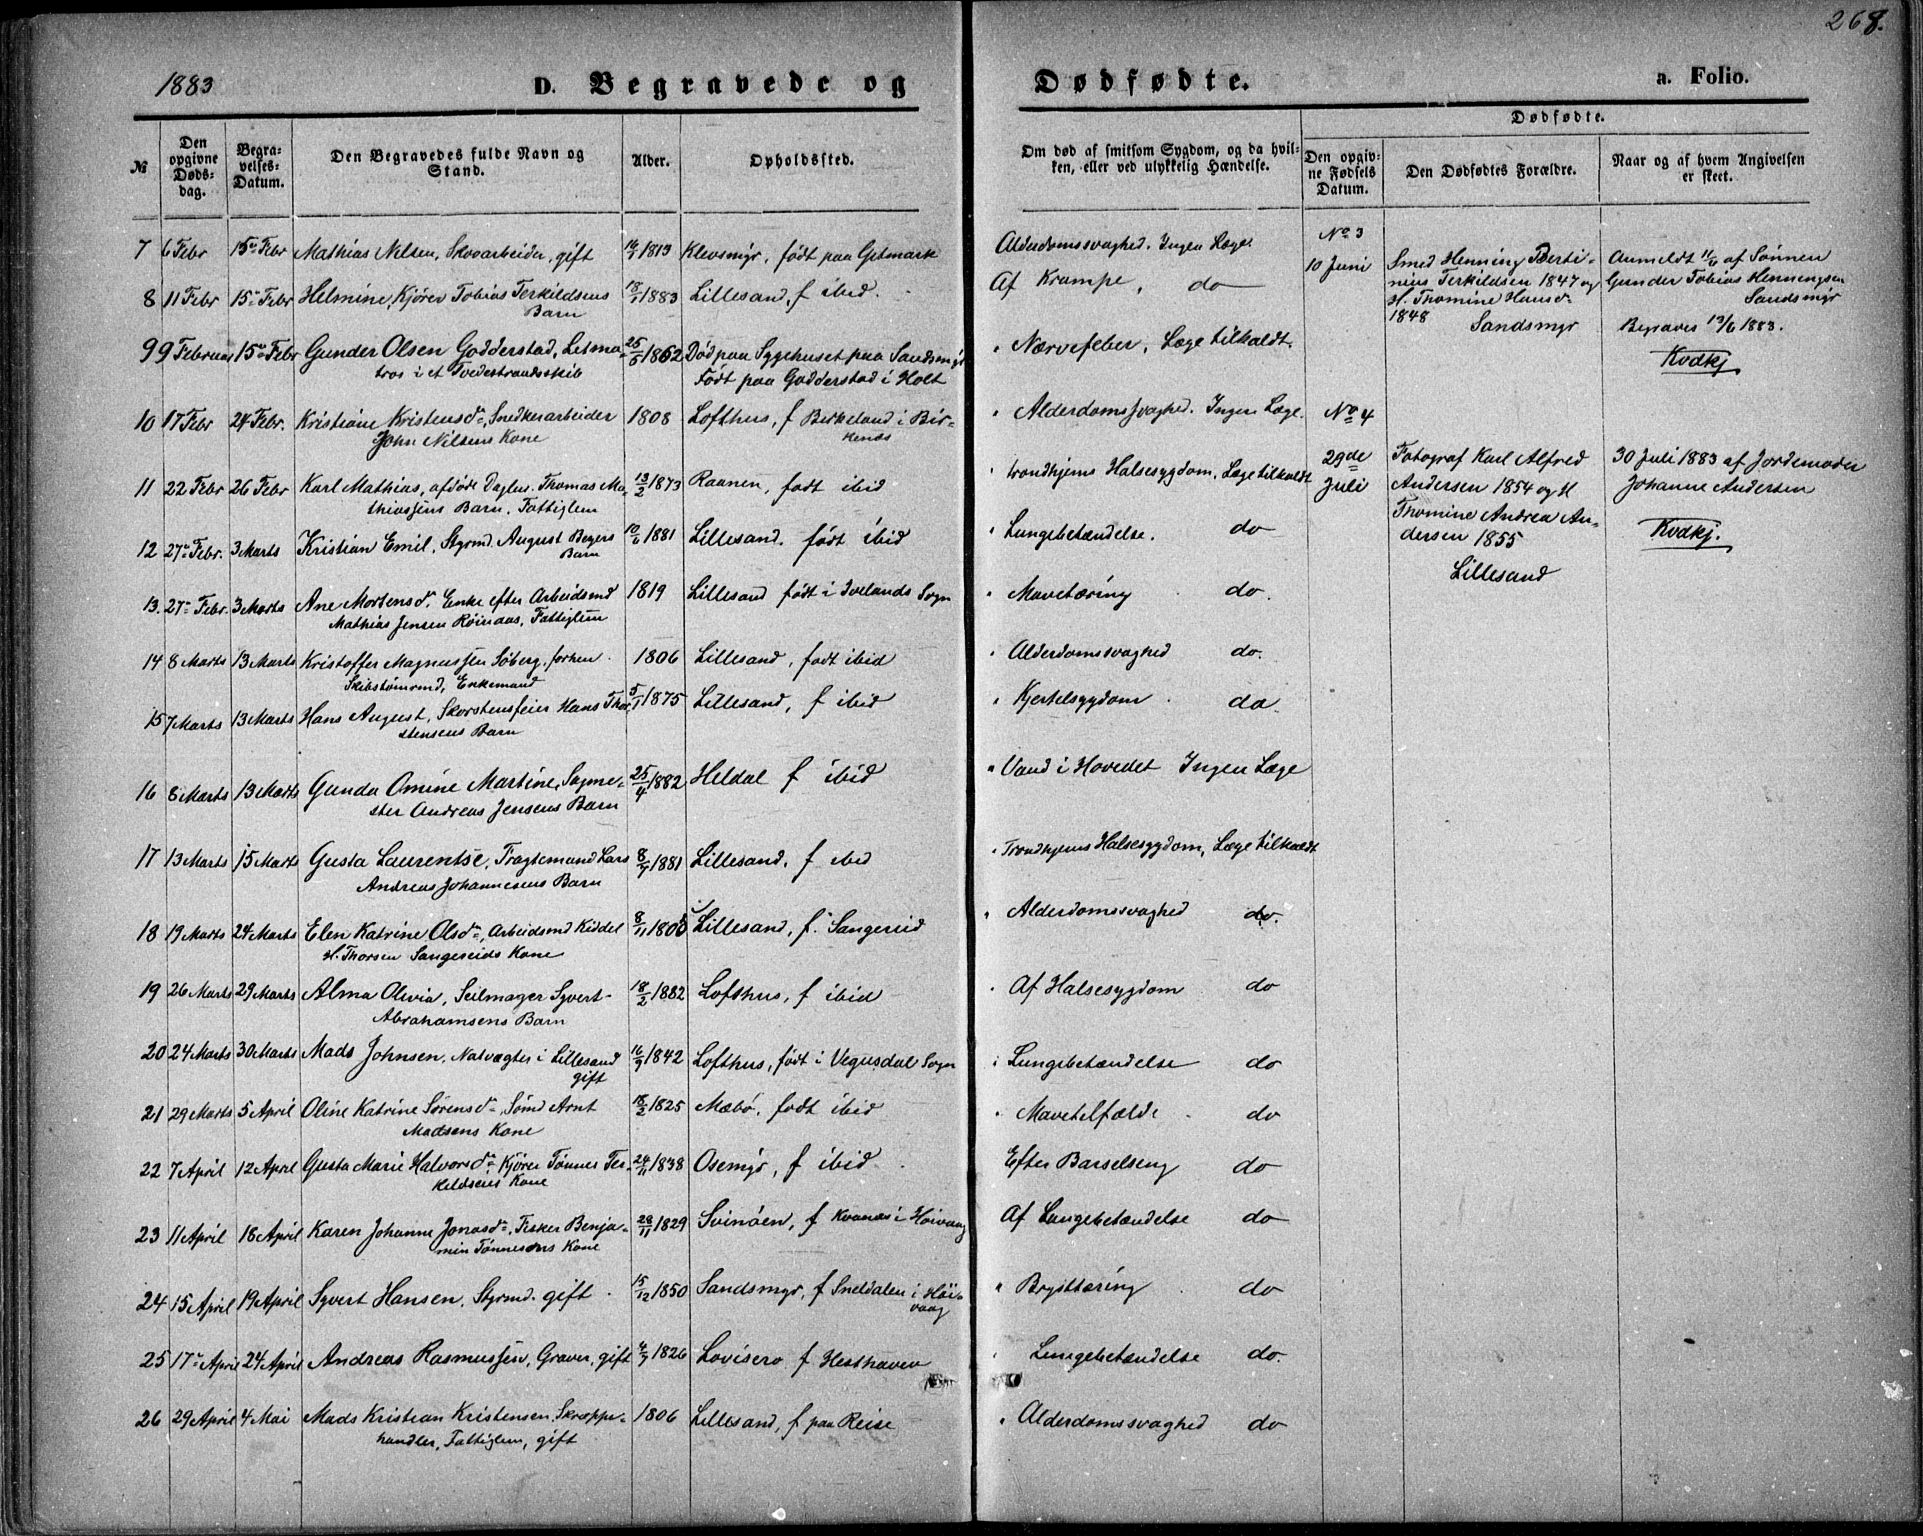 268.
1883
D. Begravede og
Dødfødte.
a. Folio.
№
Den opgivne Døds-dag.
Begra-velses-Datum.
Den Begravedes fulde Navn og Stand.
Alder.
Opholdssted.
Om død af smitsom Sygdom, og da hvil-ken, eller ved ulykkelig Hændelse.
Dødfødte.
Den opgiv-ne Fødsels Datum.
Den Dødfødtes Forældre.
Naar og af hvem Angivelsen er skeet.
7 6 Febr 15de Febr Mathias Nilsen, Skovarbeider, gift 14/4 1813 Klevsmyr, født paa Gitmark Alderdomssvaghed. Ingen Læge.
8 11 Febr 15de Febr Helmine, Kjører Tobias Terkildsens 18/1 1883 Lillesand, f ibid. Af Krampe, do
Barn
9 9 Februar 15de Febr Gunder Olsen Godderstad, Letma- 25/5 1862 Død paa Sygehuset paa Sandsmyr " Nervefeber, Læge tilkaldt.
tros i et Tvedestrandsskib Født paa Godderstad i Holt
10 17 Febr 24 Febr. Kristiane Kristensd., Snedkerarbeider 1808 Lofthus, f Birkeland i Bir- " Alderdomssvaghed. Ingen Læge.
John Nilsens Kone kenæs
11 22 Febr 26 Febr Karl Mathias, afdøde Dagln. Thomas Ma- 13/2 1873 Raanen, født ibid " Trondhjems Halsesygdom, Læge tilkaldt
thiassens Barn, Fattiglem
12 27de Febr. 3 Marts Kristian Emil, Styrmd. August Beyers 10/6 1881 Lillesand, født ibid " Lungebetændelse. do
Barn
13. 27de Febr. 3 Marts Ane Mortensd. Enke efter Arbeidsmd 1819 Lillesand født i Ivelands Sogn " Mavetæring do.
Mathias Jensen Røinaas, Fattiglem
14 8 Marts 13 Marts Kristoffer Magnussen Søberg, forhen 1806 Lillesand, født ibid " Alderdomssvaghed do.
Skibstømrmd, Enkemand
15 7 Marts 13 Marts Hans August, Skorstensfeier Hans Thor- 5/1 1875 Lillesand, f ibid " Kjertelsygdom do.
stensens Barn
16 8 Marts 13 Marts Gunda Omine Martine, Sagme- 25/4 1882 Heldal f ibid " Vand i Hovedet Ingen Læge
ster Andreas Jensens Barn
17 13 Marts 15 Marts Gusta Laurentse, Fragtemand Lars 8/7 1881 Lillesand, f ibid " Trondhjems Halsesygdom, Læge tilkaldt
Andreas Johannesens Barn
18 19 Marts 24 Marts Elen Katrine Olsd., Arbeidsmd Kiddel 8/11 1805 Lillesand, f. Sangereid " Alderdomssvaghed do.
H. Thorsen Sangereids Kone
19 26 Marts 29 Marts Alma Olivia, Seilmager Syvert 18/2 1882 Lofthus, f ibid " Af Halsesygdom do
Abrahamsens Barn
20 24 Marts 30 Marts Mads Johnsen, Natvægter i Lillesand 16/9 1842 Lofthus, født i Vegusdal Sogn " Lungebetændelse do
gift
21 29 Marts 5 April Oline Katrine Sørensd., Sømd Arnt 18/2 1825 Mæbø, født ibid " Mavetilfælde do
Madsens Kone
22 7 April 12 April Gusta Marie Halvorsd. Kjører Tønnes Ter- 24/11 1838 Osemyr, f ibid Efter Barselseng do
kildsens Kone
23 11 April 18 April Karen Johanne Jonasd., Fisker Benja- 28/11 1829 Svinøen, f Kvanæs i Høivaag Af Lungebetændelse do
min Tønnesens Kone
24 15 April 19 April Syvert Hansen, Styrmd. gift 15/12 1850 Sandsmyr, f Sneldalen i Høi- " Brysttæring do
vaag
25 17de April 24 April Andreas Rasmussen, Graver, gift 4/7 1826 Lovisero f Hesthaven " Lungebetændelse do.
26 29 April 4 Mai Mads Kristian Kristensen, Skræppe- 1806 Lillesand, f paa Reise " Alderdomssvaghed do
handler, Fattiglem, gift
No 3
10 Juni
Smed Henning Berti-
nius Terkildsen 1847 og
H. Thomine Hansd.
1848 Sandsmyr
Anmeldt 11/6 af Sønnen
Gunder Tobias Henningsen
Sandsmyr
Begraves 19/6 1883.
Kvdkj
No 4
29de
Juli
Fotograf Karl Alfred
Andersen 1854 og H
Thomine Andrea An-
dersen 1855
Lillesand
30 Juli 1883 af Jordemoder
Johanne Andersen
Kvdkj.